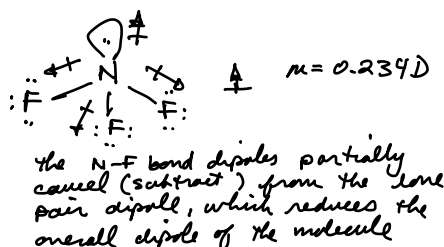 N
:F:
:F:
:F:
μ = 0.234D
the N-F bond dipoles partially
cancel (subtract) from the lone
pair dipole, which reduces the
overall dipole of the molecule